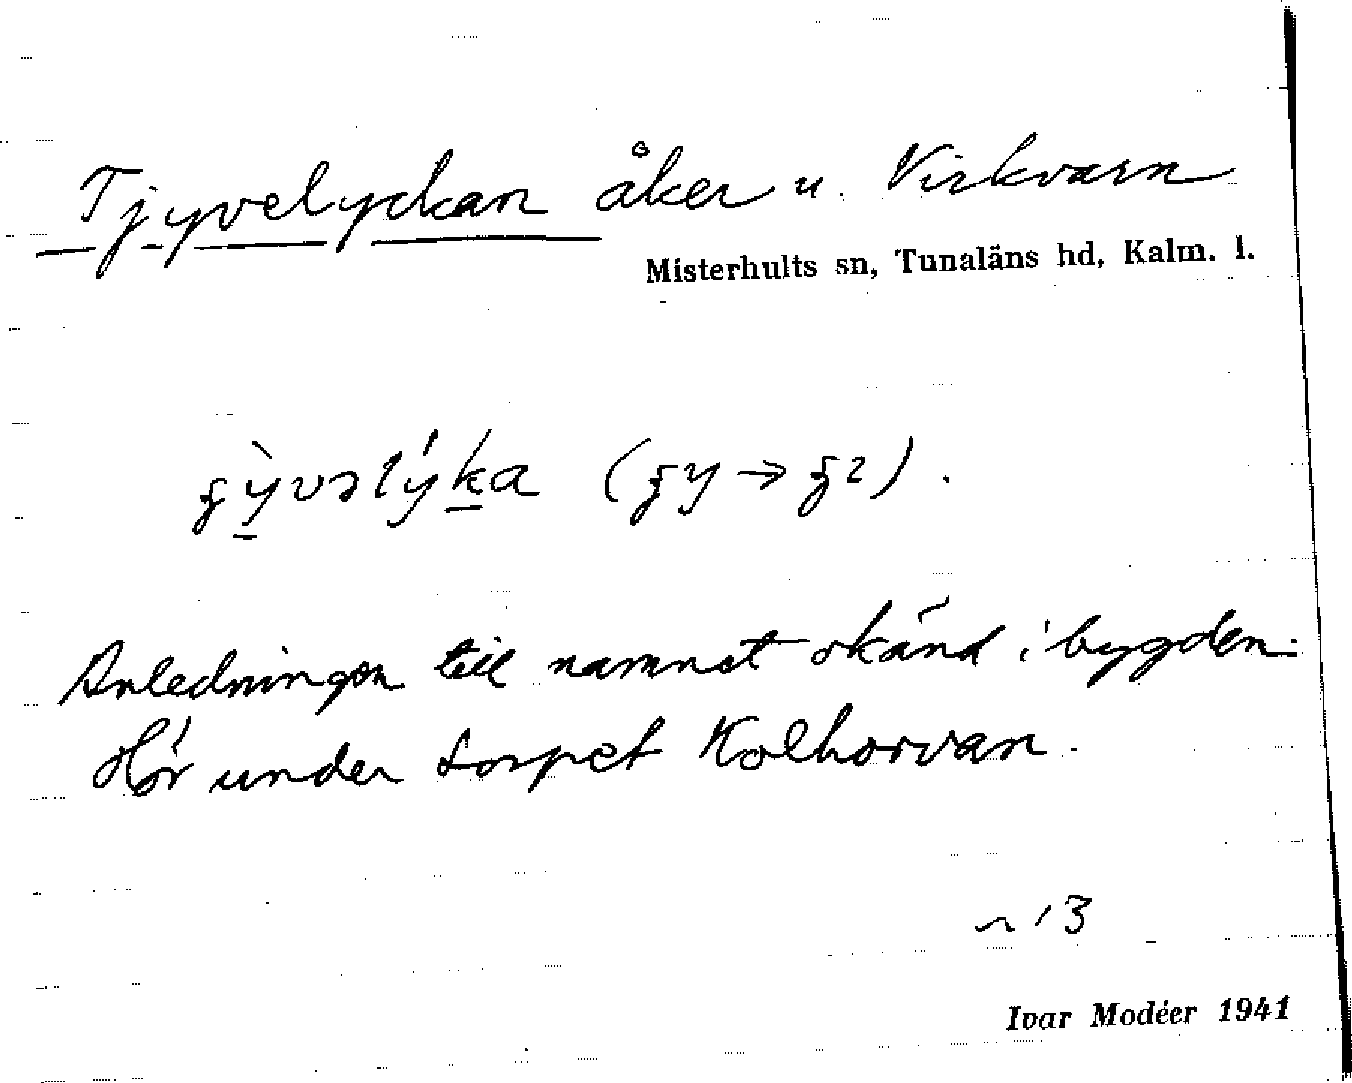 Tjyvelyckan åker u. Virkvarn
Misterhults sn, Tunaläns hd, Kalm. l.
Anledningen till namnet okänd i bygden.
Hör under torpet Kolhorvan.
Ivar Modéer 1941